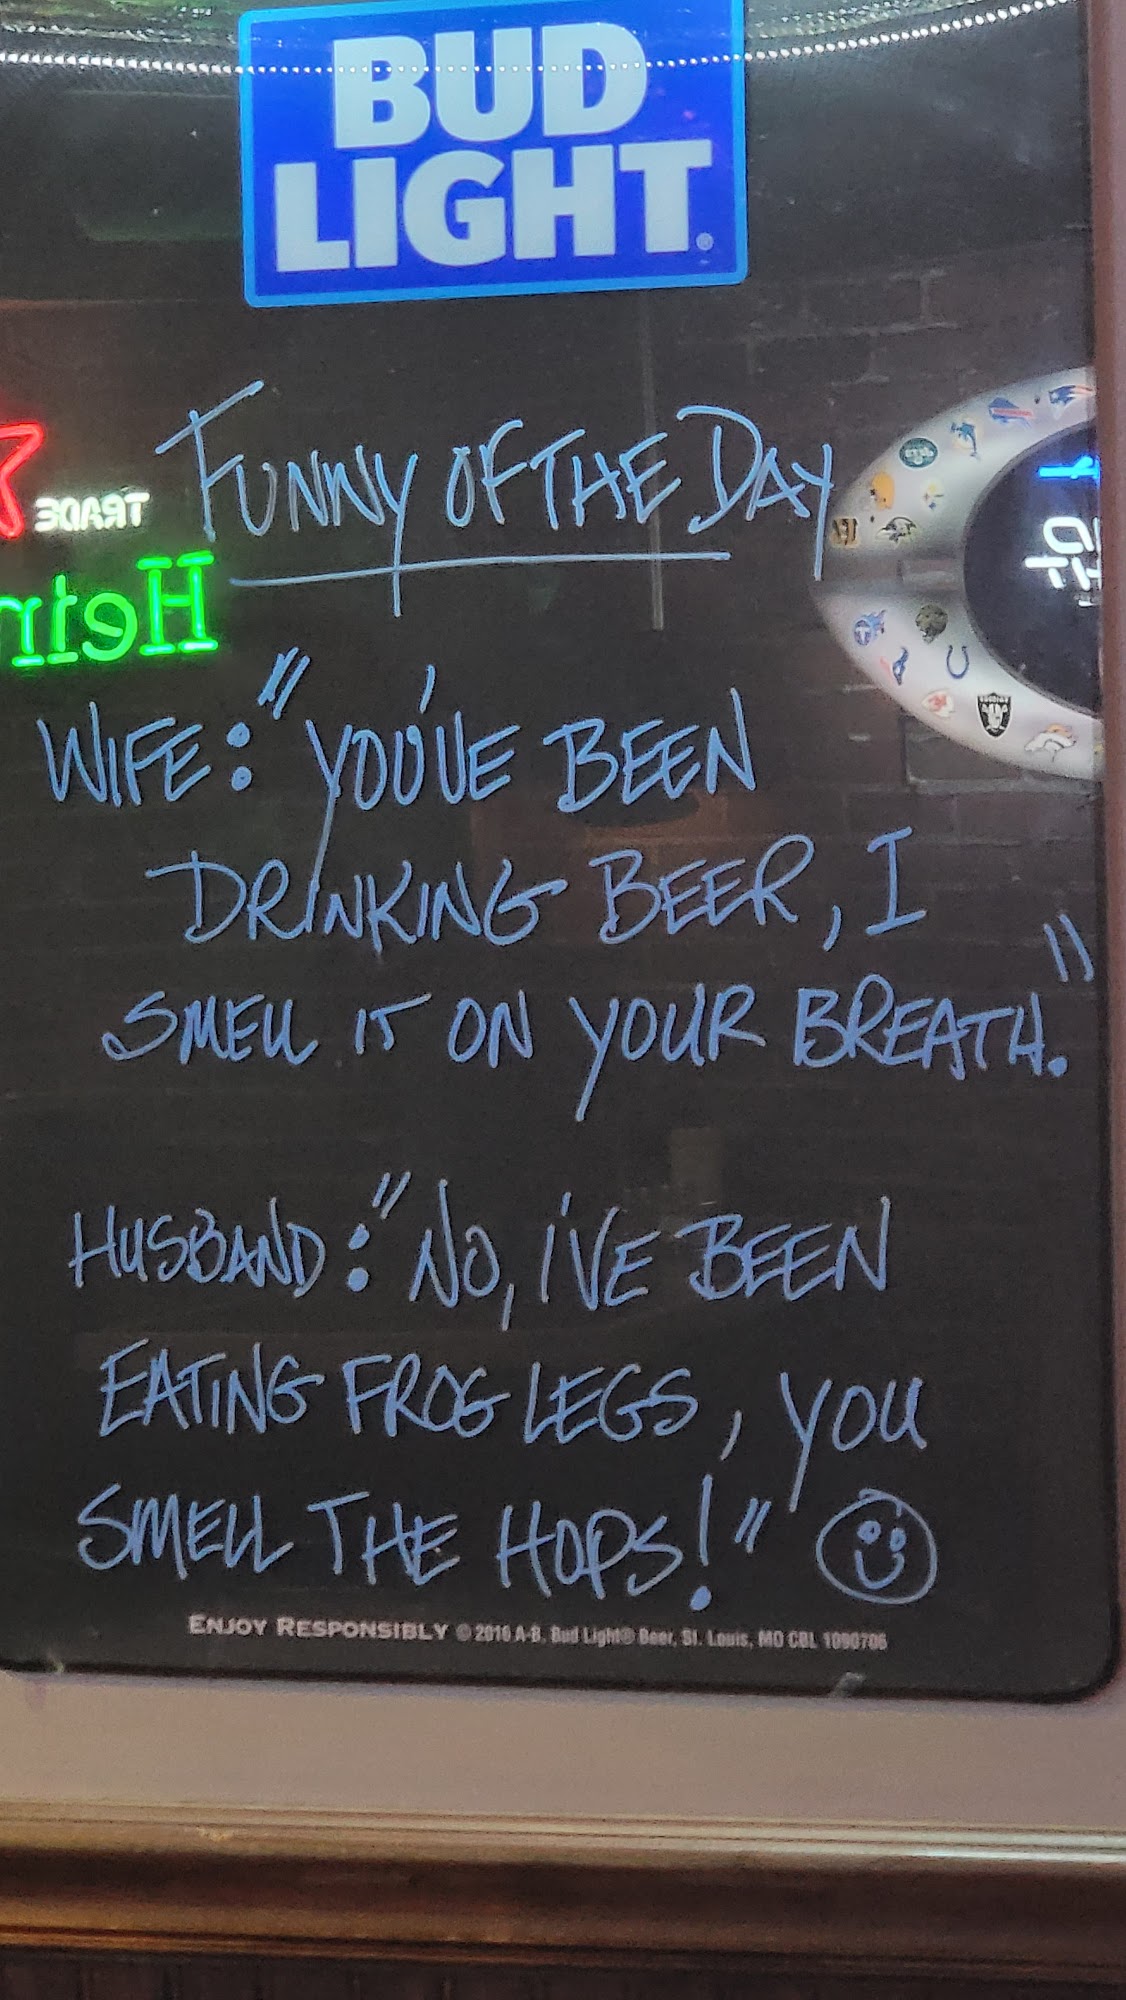 BUD
LIGHT®
FUNNY OF THE DAY
TRADE
WIFE: "YOU'VE BEEN
DRINKING BEER, I
SMELL IT ON YOUR BREATH."
HUSBAND: "NO, I'VE BEEN
EATING FROG LEGS, YOU
SMELL THE HOPS!"
ENJOY RESPONSIBLY © 2016 A-B, Bud Light® Beer, St. Louis, MO CBL 1090706